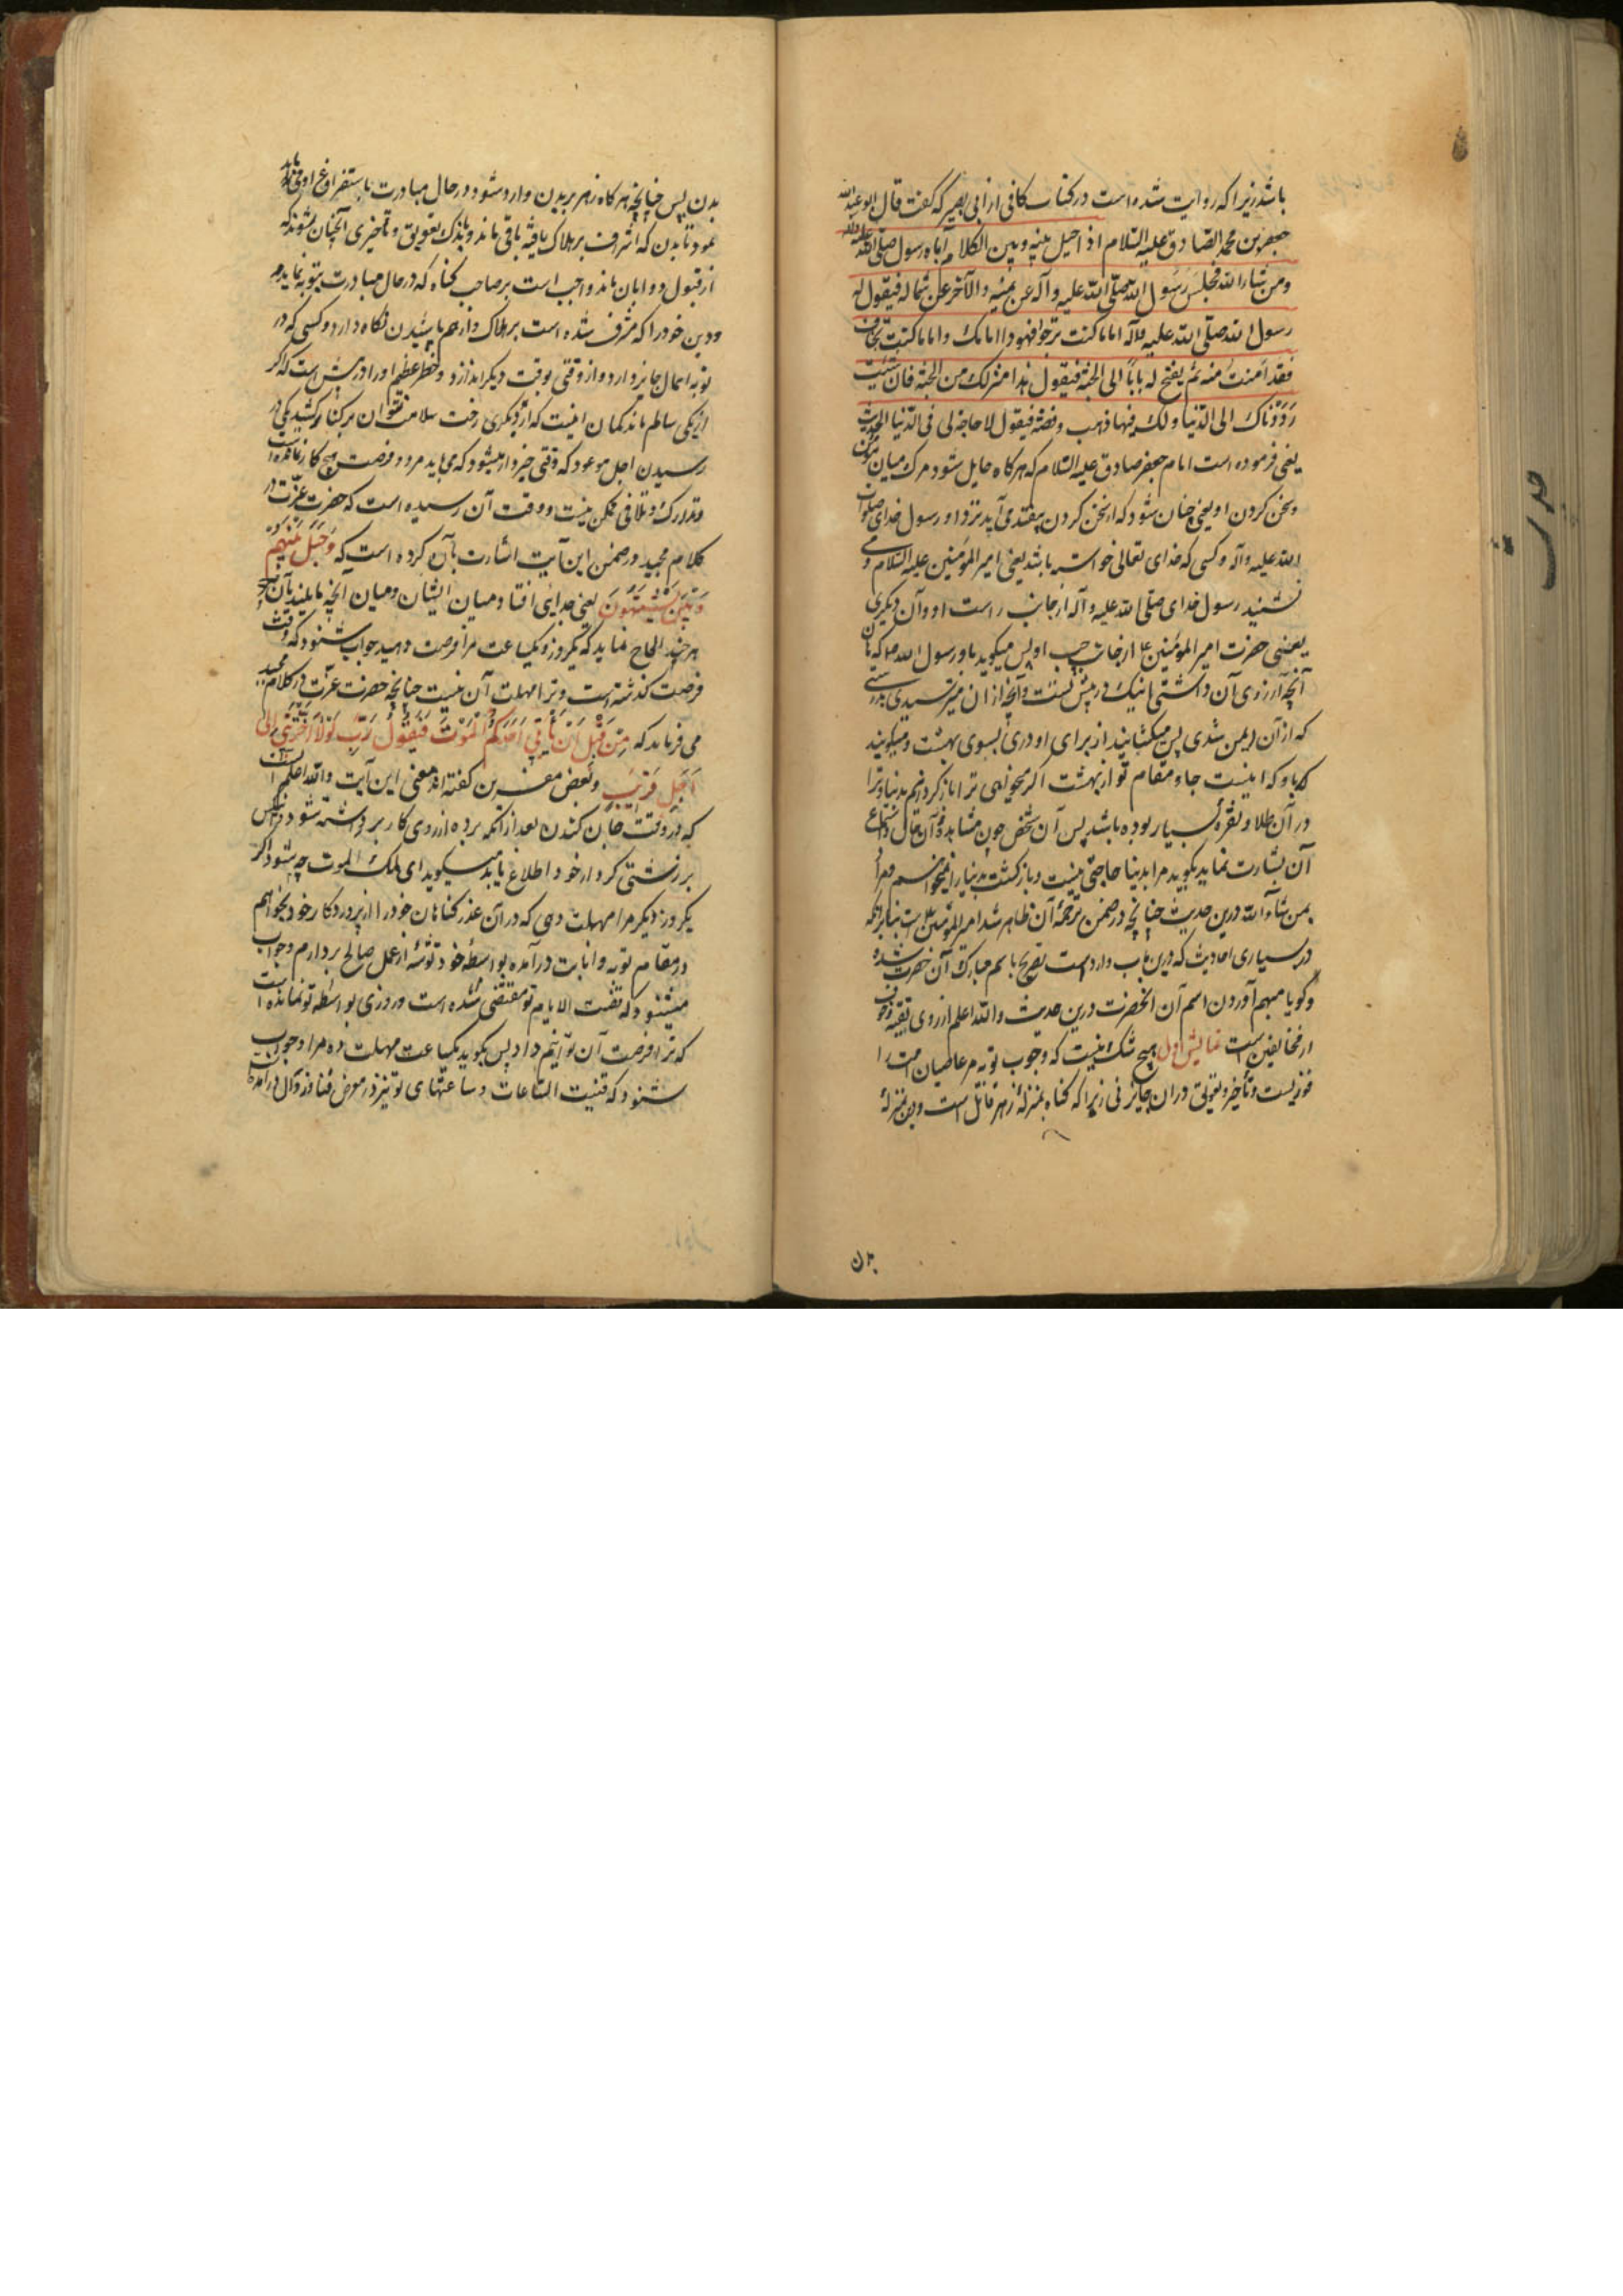 باشد زیرا که روایت شده است در کتاب کافی از ابی بصیر که گفت قال ابو عبدالله
جعفر بن محمد الصادق علیه السلام اذا حیل بینه و بین الکلام آتاه رسول صلی الله علیه وآله
ومن شاء الله فجلس رسول الله صلی الله علیه وآله عن یمینه والآخر عن شماله فیقول له
رسول الله صلی الله علیه وآله اما ما کنت ترجو فهو ذا امامک واما ما کنت تخاف
فقد امنت منه ثم یفتح له باباً الی الجنة فیقول هذا منزلک من الجنة فان شئت
رددناک الی الدنیا ولک فیها ذهب وفضة فیقول لا حاجة لی فی الدنیا الحدیث
یعنی فرموده است امام جعفر صادق علیه السلام که هر کاه حایل شود مرک میان مؤمن
وسخن کردن او یعنی چنان شود که از سخن کردن بیفتد می آید نزد او رسول خدای صلوات
الله علیه وآله وکسی که خدای تعالی خواسته باشد یعنی امیر المؤمنین علیه السلام و می
نشیند رسول خدای صلی الله علیه وآله از جانب راست او وآن دیکری
یعنی حضرت امیر المؤمنین ع از جانب چپ او پس میکوید باو رسول الله که
آنچه آرزوی آن داشتی اینک در پیش تست وآنچه از آن میترسیدی بدرستی
که از آن ایمن شدی پس میکشایند از برای او دری بسوی بهشت ومیکویند
باو که اینست جاء ومقام تو از بهشت اکر میخواهی ترا باز کردانیم بدنیا وترا
در آن طلا ونقره بسیار بوده باشد پس آن شخص چون مشاهده آن حال واستماع
آن بشارت نماید بکوید مرا بدنیا حاجتی نیست وباز کشت بدنیا را نمیخواهم ومراد
بمن شاء الله درین حدیث چنانچه در ضمن ترجمهٔ آن ظاهر شد امیر المؤمنین است بنا بر آنکه
در بسیاری احادیث که درین باب وارد است تصریح باسم مبارک آن حضرت شده
وکویا مبهم آوردن اسم آن الحضرت درین حدیث والله اعلم از روی تقیه وخوف
از مخالفین است نمایش اول هیچ شک نیست که وجوب توبه مر عاصیان امت را
فوریست وتأخیر وتعویق در آن جایز نی زیرا که کناه بمنزلهٔ زهر قاتل است ودین بمنزلهٔ
بدن
بدن پس چنانچه هر کاه زهر بر بدن وارد شود در حال مبادرت باستفراغ او می باید
نمود تا بدن که اشرف بر هلاک یافته باقی ماند وباندک تعویق وتأخیری آنچنان شود که
از قبول دوا بازماند واجب است بر صاحب کناه که در حال مبادرت بتوبه نماید
ودین خود را که مشرف شده است بر هلاک واز هم پاشیدن نکاه دارد وکسی که در
توبه اهمال جایز دارد واز وقتی بوقت دیکر اندازد دو خطر عظیم او را در پیش است که اکر
از یکی سالم ماند کمان اینست که از دیکری رخت سلامت نتوان بر کنار کشید یکی
رسیدن اجل موعود که وقتی خبردار میشود که می باید مرد وفرصت هیچ کار نمانده است
وتدارک وتلافی ممکن نیست ووقت آن رسیده است که حضرت عزت در
کلام مجید در ضمن این آیت اشارت بآن کرده است که وحیل بینهم
وبین ما یشتهون یعنی جدایی افتاد میان ایشان ومیان آنچه مایلند بآن
هر چند الحاح نماید که یکروز ویکساعت مرا فرصت دهید جواب شنود که وقت
فرصت کذشته است وترا مهلت آن نیست چنانچه حضرت عزت در کلام مجید
می فرماید که من قبل ان یأتی احدکم الموت فیقول رب لولا اخرتنی الی
اجل قریب وبعض مفسرین کفته اند معنی این آیت والله اعلم آن است
که در وقت جان کندن بعد از آنکه پرده از روی کار برداشته شود
بر زشتی کردار خود اطلاع یابد میکوید ای ملک الموت چه شود اکر
یکروز دیکر مرا مهلت دهی که در آن عذر کناهان خود را از پروردکار خود بخواهم
در مقام توبه وانابت در آمده بواسطهٔ خود توشهٔ از عمل صالح بردارم وجواب
میشنود که فنیت الایام تو مقتضی شده است وروزی بواسطه تو نمانده است
که ترا فرصت آن توانیم داد پس بکوید یکساعت مهلت ده مرا وجواب
شنود که فنیت الساعات وساعتهای تو نیز در معرض فنا وزوال در آمده